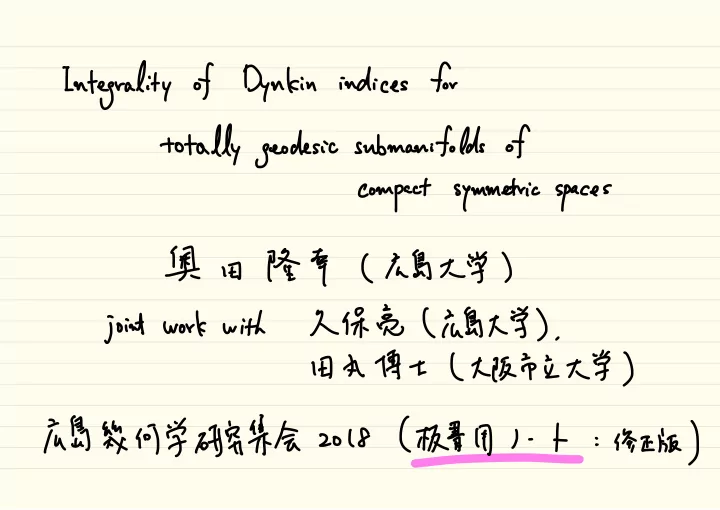 Integrality of Dynkin indices for
totally geodesic submanifolds of
compact symmetric spaces
奥田 隆幸 (広島大学)
joint work with 久保亮 (広島大学),
田丸 博士 (大阪市立大学)
広島幾何学研究集会 2018 (板書用ノート : 修正版)